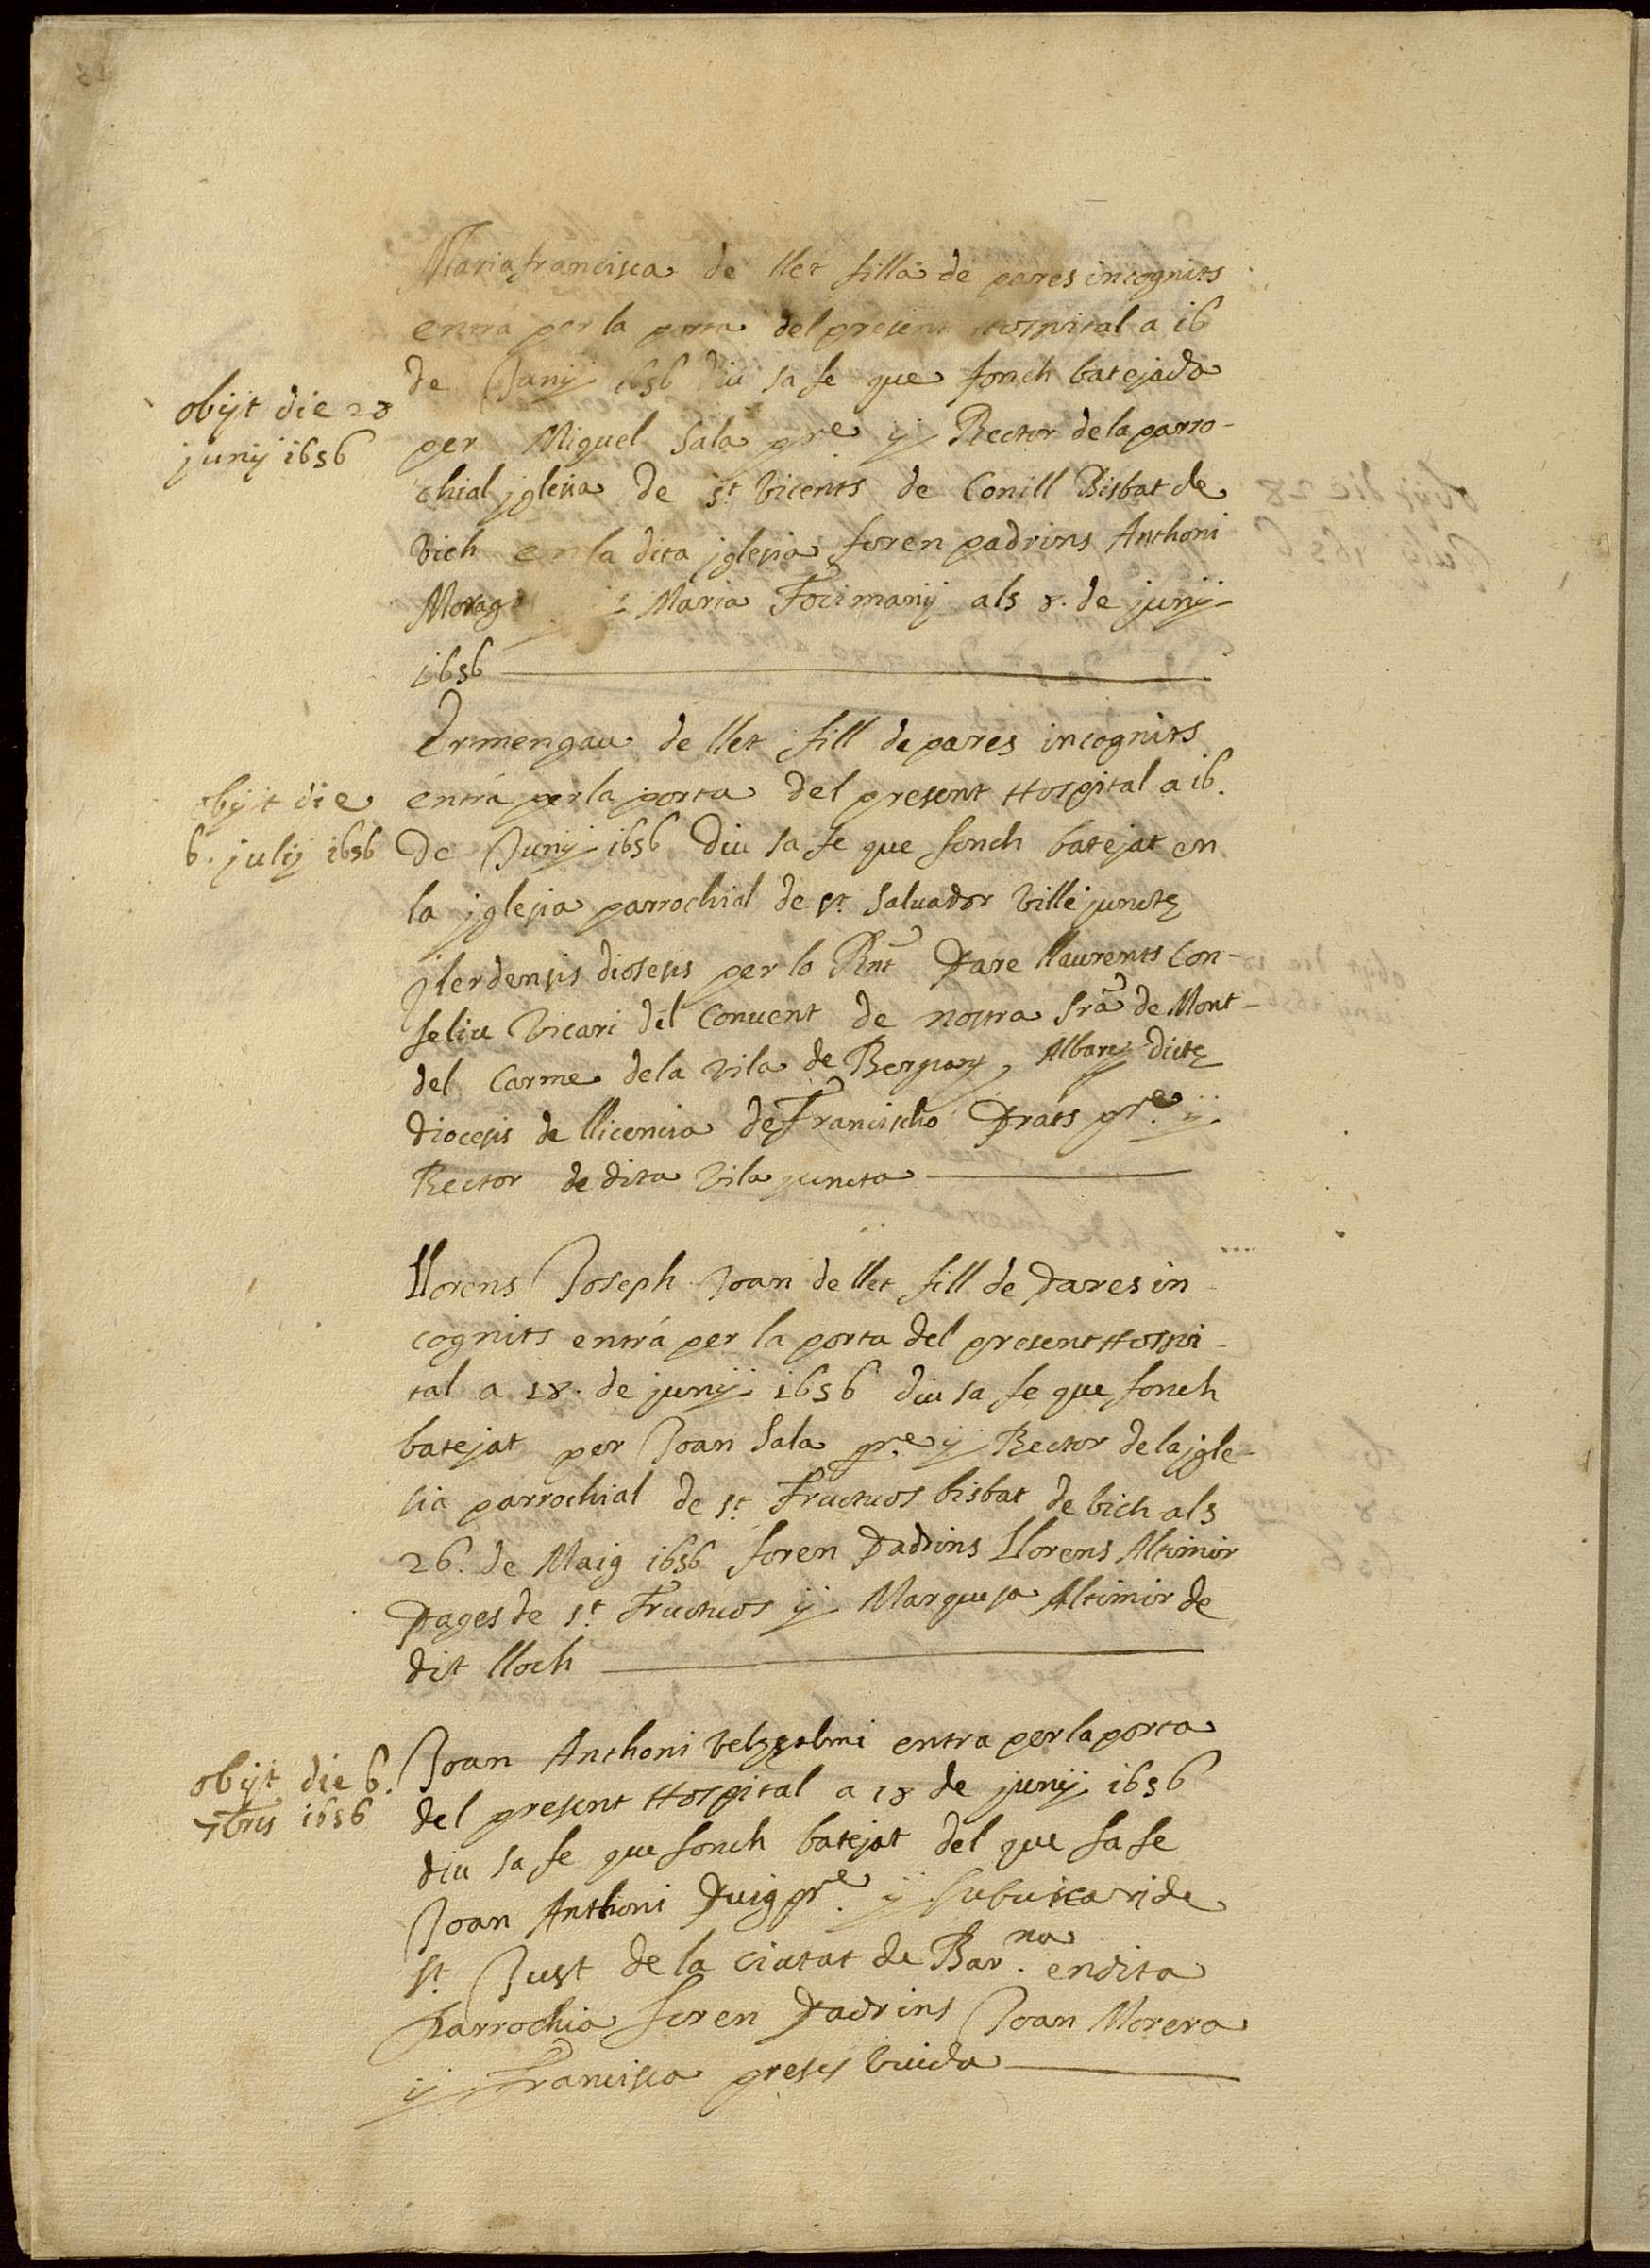 Maria francisca de llet filla de pares incognits
entrá per la porta del present Hospital a 16
de Junij 1656 diu sa fe que fonch batejada
obijt die 28
junij 1656
per Miquel Sala pre y Rector de la parro-
chial jglesia de st Vicents de Conill Bisbat de
Vich en la dita jglesia foren padrins Anthoni
Maria als 8. de junij
1656
Ermengau de llet fill de pares incognits
obijt die
6. julij 1656
entrá per la porta del present Hospital a 16.
De Junij 1656 Diu sa fe que fonch batejat en
la jglesia parrochial de st. Salvador Ville junctę
jlerdensis diosesis per lo Rnt Pare llaurents Con-
seliu Vicari del Convent de nostra Sra de Mont-
del Carme de la Vila de dictę
Diocesis de llicencia de Francischo Prats pre. y
Rector de dita Vila juncta
Llorens Joseph Joan de llet fill de Pares in
cognits entrá per la porta del present Hospi-
tal a 18. de junij 1656 diu sa fe que fonch
batejat per Joan Sala pre y Rector de la jgle-
sia parrochial de st. Fructuos bisbat de bich als
26. de Maig 1656 foren Padrins Llorens Altimir
Pages de st. Fructuos y Marquesa Altimir de
dit lloch
obijt die 6.
7bris 1656
Joan Anthoni entra per la porta
del present Hospital a 18 de junij 1656
diu sa fe que fonch batejat del que fa fe
Joan Anthoni Puig pre. y subvicari de
st. Just de la ciutat de Bar.na en dita
Parrochia foren Padrins Joan Morera
y Francisca preses viuda